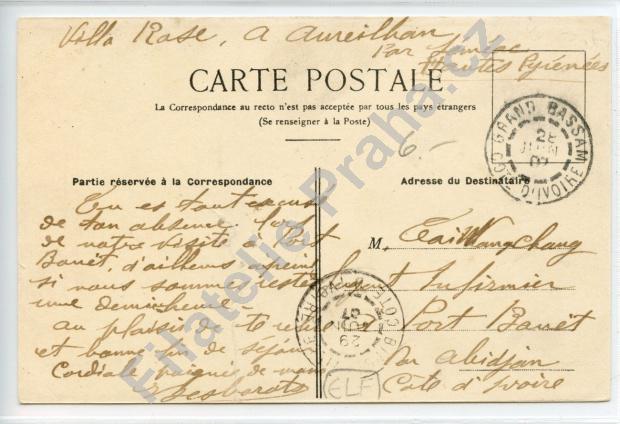 Villa Rose, a Aureilhan
Par
Hautes Pyrénées
CARTE POSTALE
La Correspondance au recto n'est pas acceptée par tous les pays étrangers
(Se renseigner à la Poste)
6-
GRAND BASSAM
COTE D'IVOIRE
Partie réservée à la Correspondance
Adresse du Destinataire
Tu es tout excusé
de ton absence lors
de notre visite à Port
Bouët, d'ailleurs à peine
si nous sommes restés
une demi heure.
au plaisir de te
et bonne fin de séjour
Cordiale poignée de main
Desbordes
M,
Infirmier
Port Bouët
par Abidjan
Côte d'Ivoire
29
07
ELF
Filatelie-Praha.cz